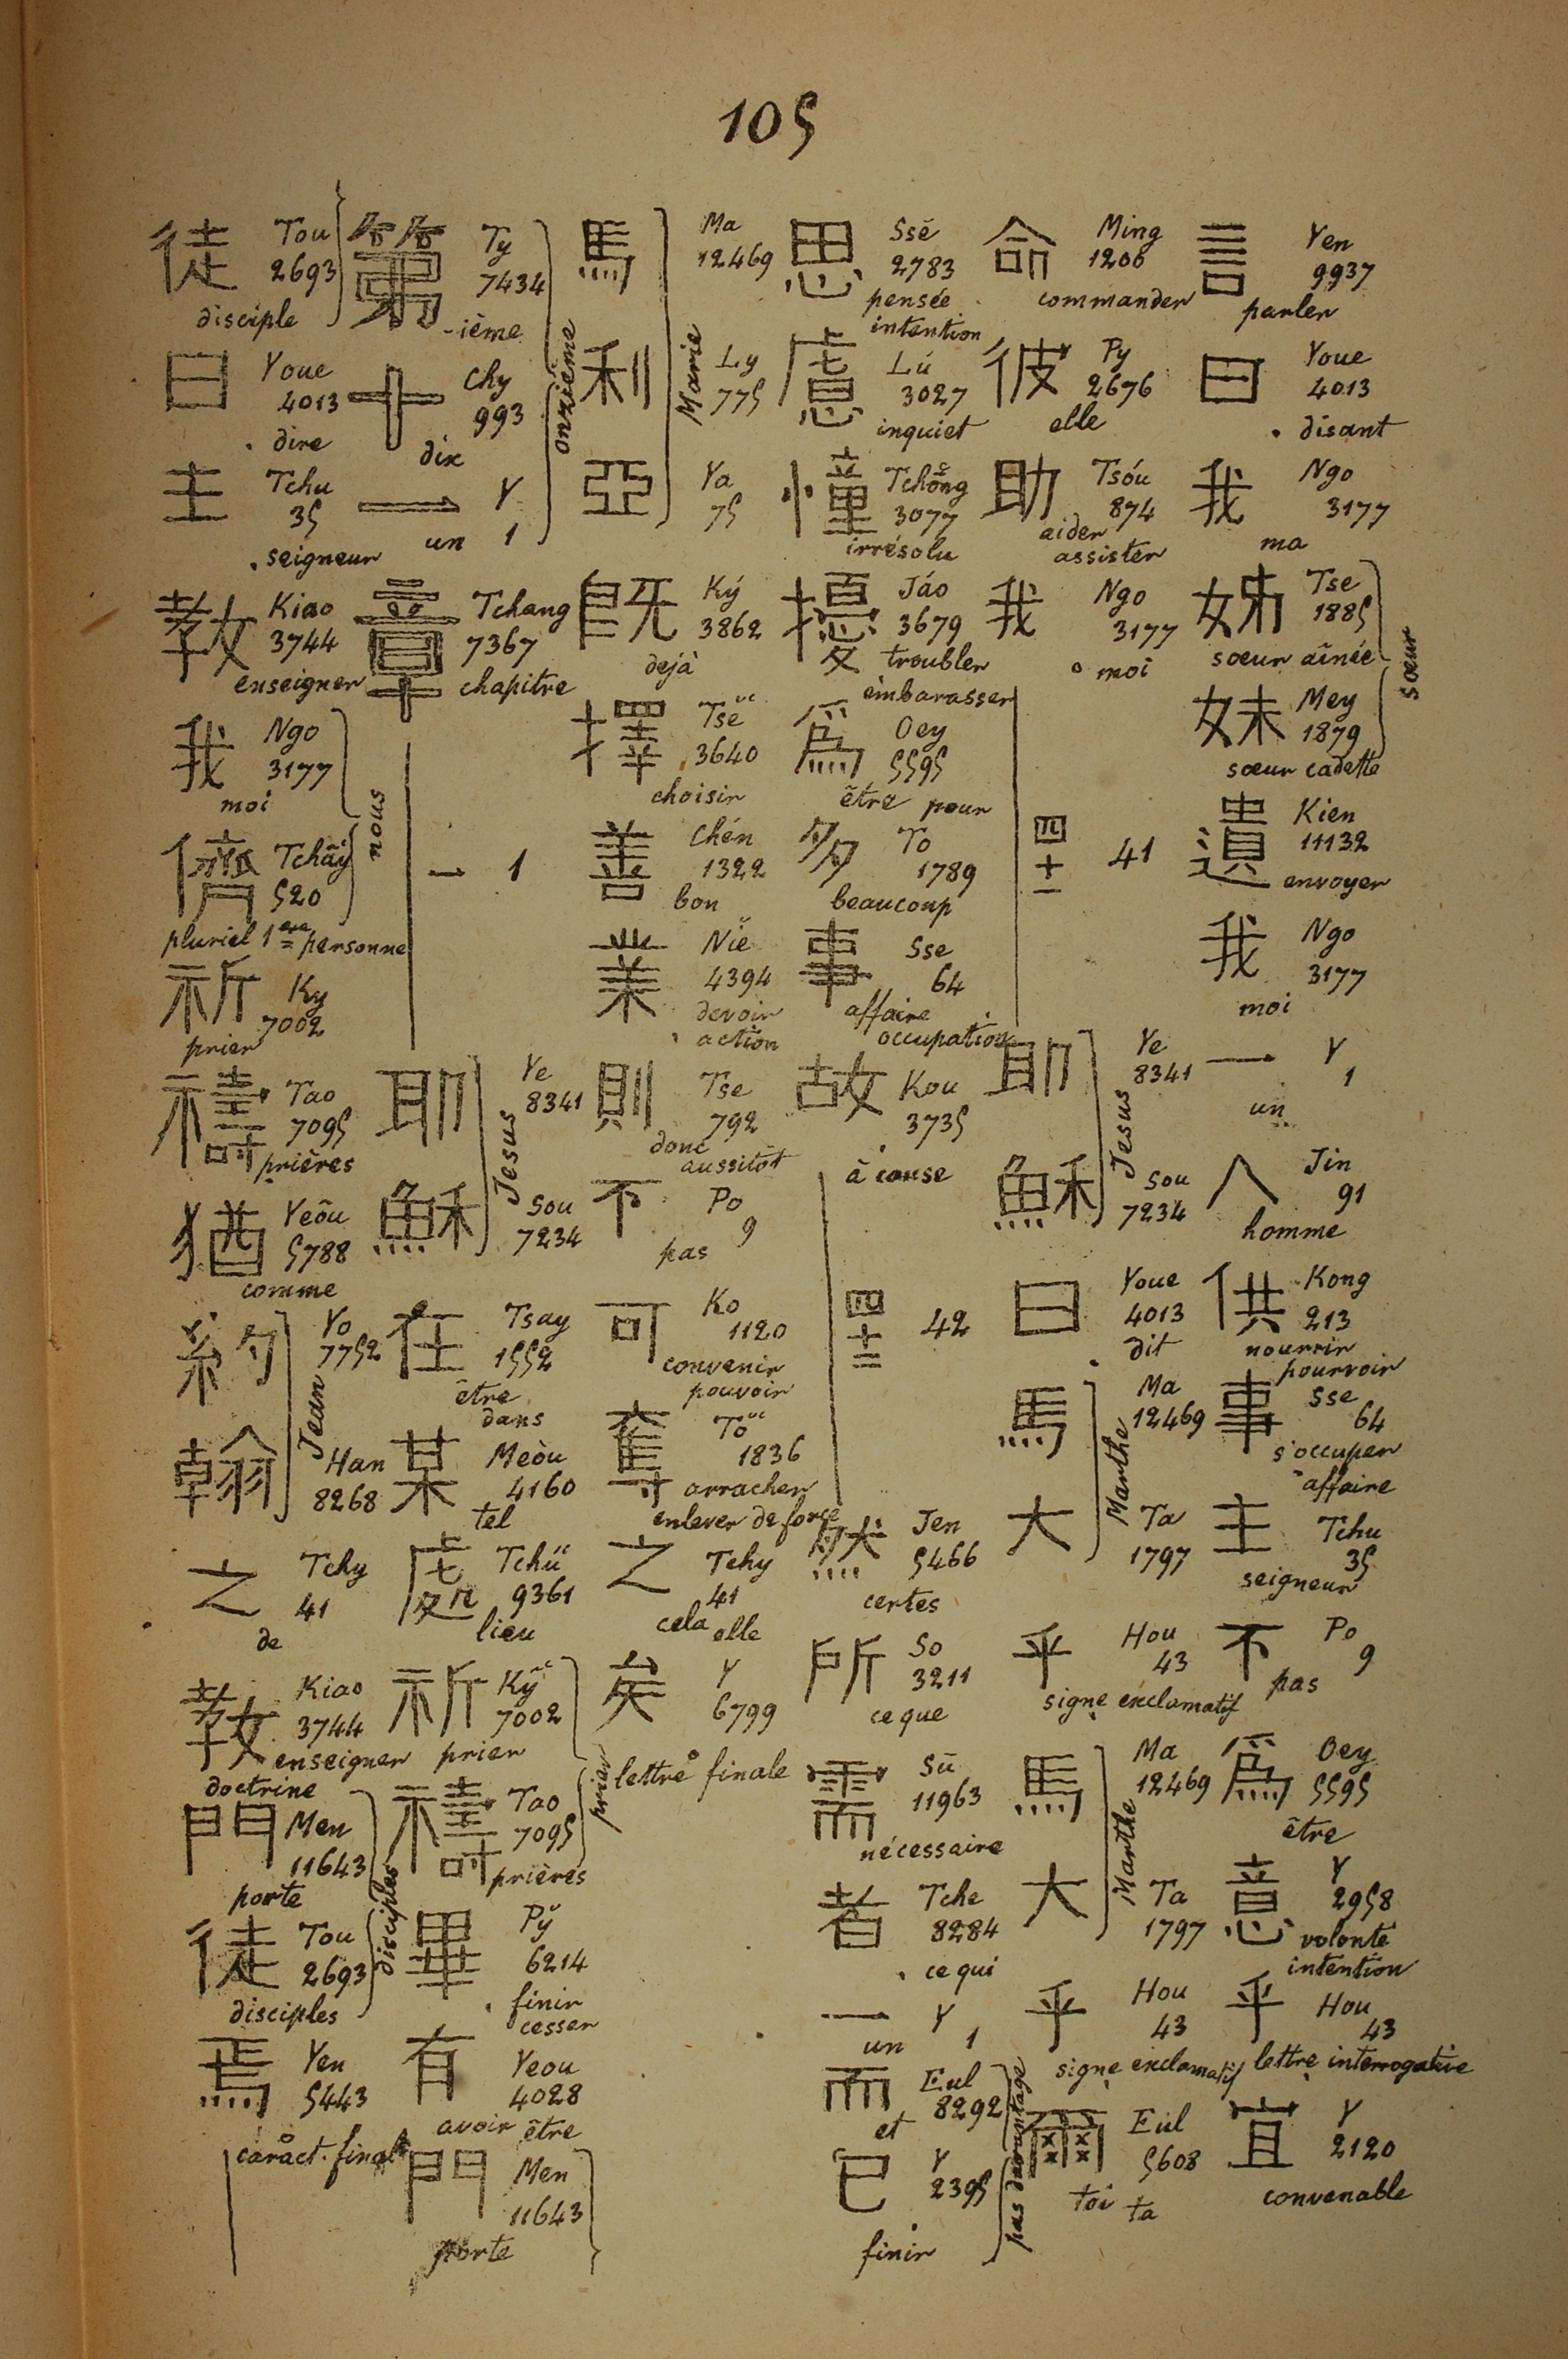 105
言 Yen
9937
parler
曰 Youe
4013
disant
我 Ngo
3177
ma
姊 Tse
1885
sœur aînée
妹 Mey
1879
sœur cadette
sœur
遺 Kien
11132
envoyer
我 Ngo
3177
moi
一 Y
1
un
人 Jin
91
homme
供 Kong
213
nourrir
pourvoir
事 Sse
64
s'occuper
affaire
主 Tchu
35
seigneur
不 Po
9
pas
爲 Oey
5595
être
意 Y
2958
volonté
intention
乎 Hou
43
lettre interrogative
宜 Y
2120
convenable
命 Ming
1200
commander
彼 Py
2676
elle
助 Tsóu
874
aider
assister
我 Ngo
3177
moi
四十一 41
耶 Ye
8341
穌 Sou
7234
Jesus
曰 Youe
4013
dit
馬 Ma
12469
大 Ta
1797
Marthe
乎 Hou
43
signe exclamatif
馬 Ma
12469
大 Ta
1797
Marthe
乎 Hou
43
signe exclamatif
爾 Eul
5608
toi
ta
思 Ssē
2783
pensée
intention
慮 Lú
3027
inquiet
憧 Tchŏng
3077
irrésolu
擾 Jáo
3679
troubler
embarasser
爲 Oey
5595
être pour
多 To
1789
beaucoup
事 Sse
64
affaire
occupation
故 Kou
3735
à cause
四十二 42
然 Jen
5466
certes
所 So
3211
ce que
需 Sū
11963
nécessaire
者 Tche
8284
ce qui
一 Y
1
un
而 Eul
8292
et
已 Y
2395
finir
pas davantage
馬 Ma
12469
利 Ly
775
亞 Ya
75
Marie
既 Ký
3862
dejà
擇 Tsĕ
3640
choisir
善 Chén
1322
bon
業 Niĕ
4394
devoir
action
則 Tse
792
donc
aussitôt
不 Po
9
pas
可 Ko
1120
convenir
pouvoir
奪 Tŏ
1836
arracher
enlever de force
之 Tchy
41
cela elle
矣 Y
6799
lettre finale
第 Ty
7434
-ième
十 Chy
993
dix
一 Y
un 1
onzième
章 Tchang
7367
chapitre
一 1
耶 Ye
8341
穌 Sou
7234
Jesus
在 Tsay
1552
être
dans
某 Meòu
4160
tel
處 Tchú
9361
lieu
祈 Kỹ
7002
prier
禱 Tao
7095
prières
prier
畢 Pỹ
6214
finir
cesser
有 Yeou
4028
avoir être
門 Men
11643
porte
徒 Tou
2693
disciple
曰 Youe
4013
dire
主 Tchu
35
seigneur
教 Kiao
3744
enseigner
我 Ngo
3177
moi
儕 Tchãy
520
pluriel 1ere personne
nous
祈 Ky
7002
prier
禱 Tao
7095
prières
猶 Yeôu
5788
comme
約 Yo
7752
翰 Han
8268
Jean
之 Tchy
41
de
教 Kiao
3744
enseigner
doctrine
門 Men
11643
porte
徒 Tou
2693
disciples
disciples
焉 Yen
5443
caract. final